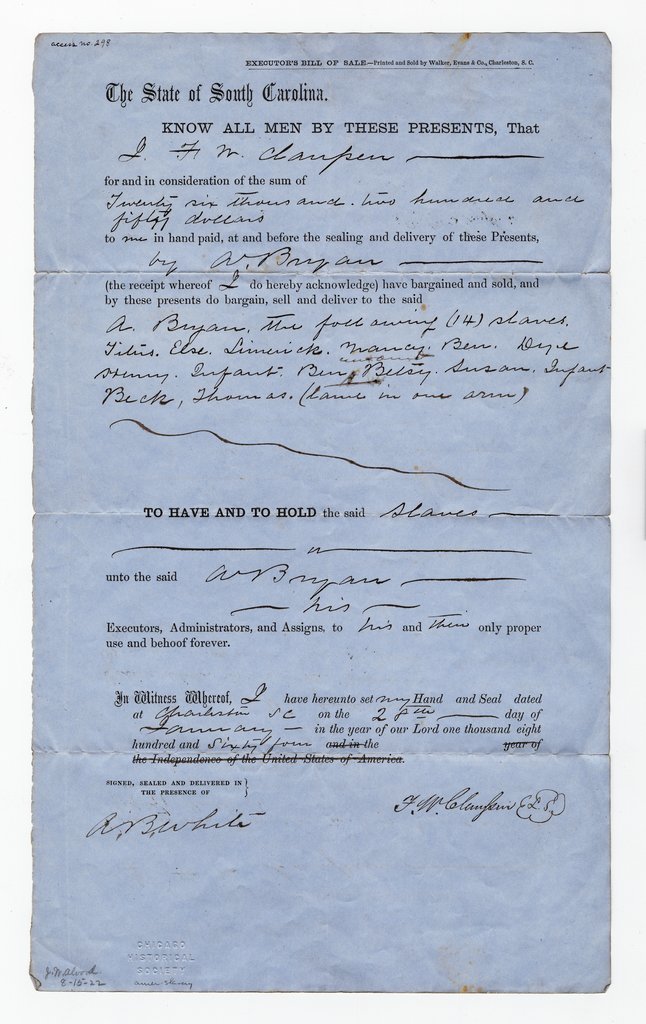 access no. 298
EXECUTOR'S BILL OF SALE.—Printed and Sold by Walker, Evans & Co., Charleston, S. C.
The State of South Carolina.
KNOW ALL MEN BY THESE PRESENTS, That
I. F. W. Claussen
for and in consideration of the sum of
Twenty six thousand. two hundred and
fifty dollars
to me in hand paid, at and before the sealing and delivery of these Presents,
by A. Bryan
(the receipt whereof I do hereby acknowledge) have bargained and sold, and
by these presents do bargain, sell and deliver to the said
A. Bryan, the following (14) slaves.
Titus. Else. Limerick. Nancy. Ben. Dye
Henny. Infant. Ben, Betsy. Susan. Infant
Beck, Thomas. (lame in one arm)
TO HAVE AND TO HOLD the said slaves
"
unto the said A Bryan
his
Executors, Administrators, and Assigns, to his and their only proper
use and behoof forever.
In Witness Whereof, I have hereunto set my Hand and Seal dated
at Charleston SC on the 28th day of
January in the year of our Lord one thousand eight
hundred and Sixty four and in the year of
the Independence of the United States of America.
SIGNED, SEALED AND DELIVERED IN
THE PRESENCE OF
A. B. White
F. W. Claussen (L. S.)
CHICAGO
HISTORICAL
SOCIETY
J. W. Alvord
8-15-22
amer slavery